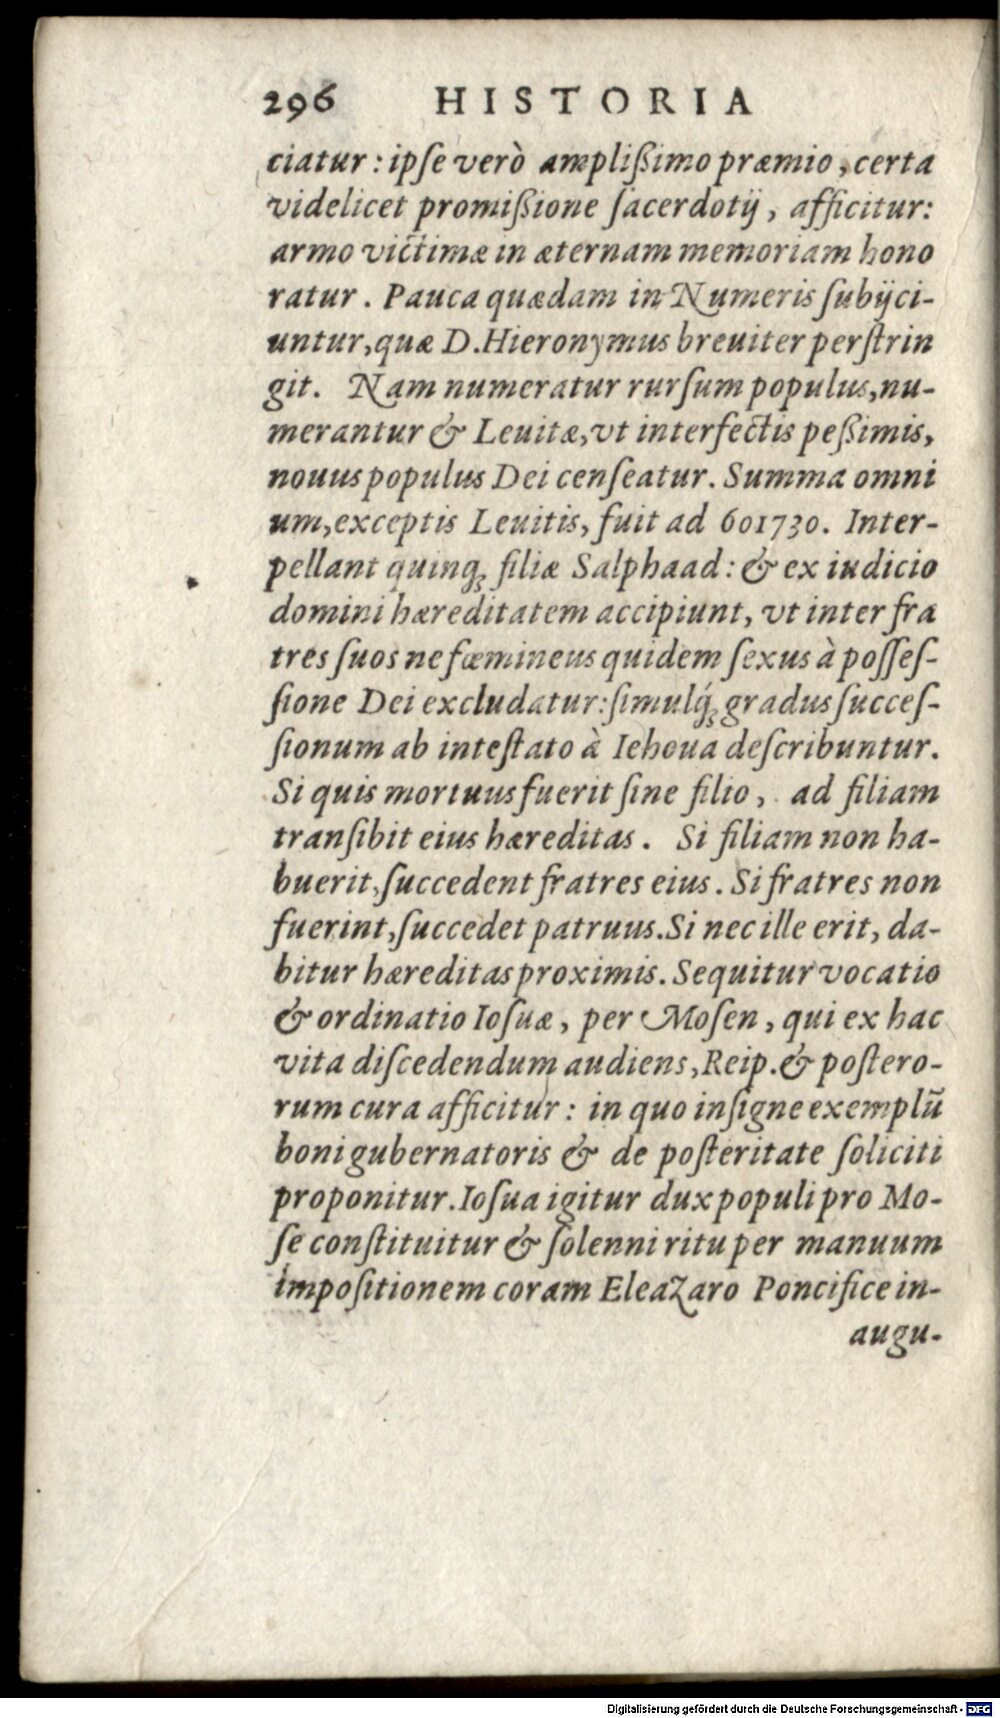 296 HISTORIA
ciatur: ipſe verò ampliſsimo præmio, certa
videlicet promiſsione ſacerdotij, afficitur:
armo victimæ in æternam memoriam hono
ratur. Pauca quædam in Numeris ſubijci-
untur, quæ D. Hieronymus breuiter perſtrin
git. Nam numeratur rurſum populus, nu-
merantur & Leuitæ, vt interfectis peſsimis,
nouus populus Dei cenſeatur. Summa omni
um, exceptis Leuitis, fuit ad 601730. Inter-
pellant quinq; filiæ Salphaad: & ex iudicio
domini hæreditatem accipiunt, vt inter fra
tres ſuos ne fœmineus quidem ſexus à poſſeſ-
ſione Dei excludatur: ſimulq́; gradus ſucceſ-
ſionum ab inteſtato à Iehoua deſcribuntur.
Si quis mortuus fuerit ſine filio, ad filiam
tranſibit eius hæreditas. Si filiam non ha-
buerit, ſuccedent fratres eius. Si fratres non
fuerint, ſuccedet patruus. Si nec ille erit, da-
bitur hæreditas proximis. Sequitur vocatio
& ordinatio Ioſuæ, per Moſen, qui ex hac
vita diſcedendum audiens, Reip. & poſtero-
rum cura afficitur: in quo inſigne exemplũ
boni gubernatoris & de poſteritate ſoliciti
proponitur. Ioſua igitur dux populi pro Mo-
ſe conſtituitur & ſolenni ritu per manuum
impoſitionem coram Eleazaro Poncifice in-
augu-
Digitalisierung gefördert durch die Deutsche Forschungsgemeinschaft - DFG